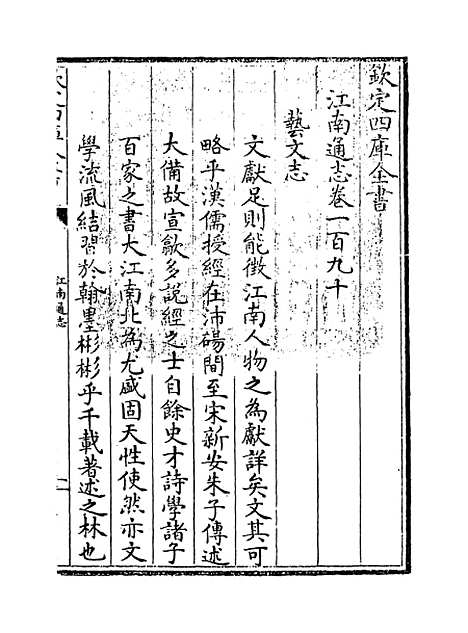 欽定四庫全書
江南通志卷一百九十
藝文志
文獻足則能徵江南人物之為獻詳矣文其可
略乎漢儒授經在沛碭間至宋新安朱子傳述
大備故宣歙多說經之士自餘史才詩學諸子
百家之書大江南北為尤盛固天性使然亦文
學流風結習於翰墨彬彬乎千載著述之林也
江南通志